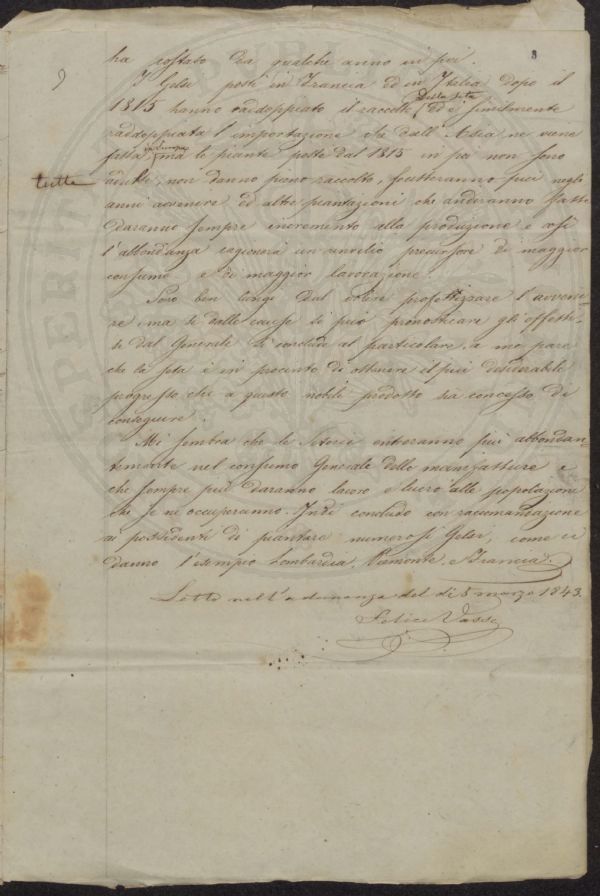 9
8
ha costato da qualche anno in poi.
I Gelsi posti in Francia ed in Italia dopo il
1815 hanno raddoppiato il raccolto della seta ed è similmente
raddoppiata l'importazione che dall'Asia ne viene
fatta in Europa ma le piante poste dal 1815 in poi non sono
tutte
adulte, non danno pieno raccolto, frutteranno più negli
anni avvenire ed altre piantazioni che anderanno fatte
daranno sempre incremento alla produzione e così
l'abbondanza cagionerà un anvilio precursore di maggior
consumo e di maggior lavorazione.
Sono ben lungi dal volere profetizzare l'avveni-
re, ma se dalle cause si può pronosticare gli effetti
se dal Generale si conclude al particolare, a me pare
che la seta è in procinto di ottenere il più desiderabile
progresso che a questo nobile prodotto sia concesso di
conseguire.
Mi sembra che le sterie entreranno più abbondan-
temente nel consumo Generale delle manifatture e
che sempre più daranno lavoro e lucro alle popolazioni
che se ne occuperanno. Indi concludo con raccomandazione
ai possidenti di piantare numerosi Gelsi, come ce
danno l'esempio Lombardia, Piemonte, e Francia.
Letto nell'adunanza del dì 5 marzo 1843.
Felice Vasse